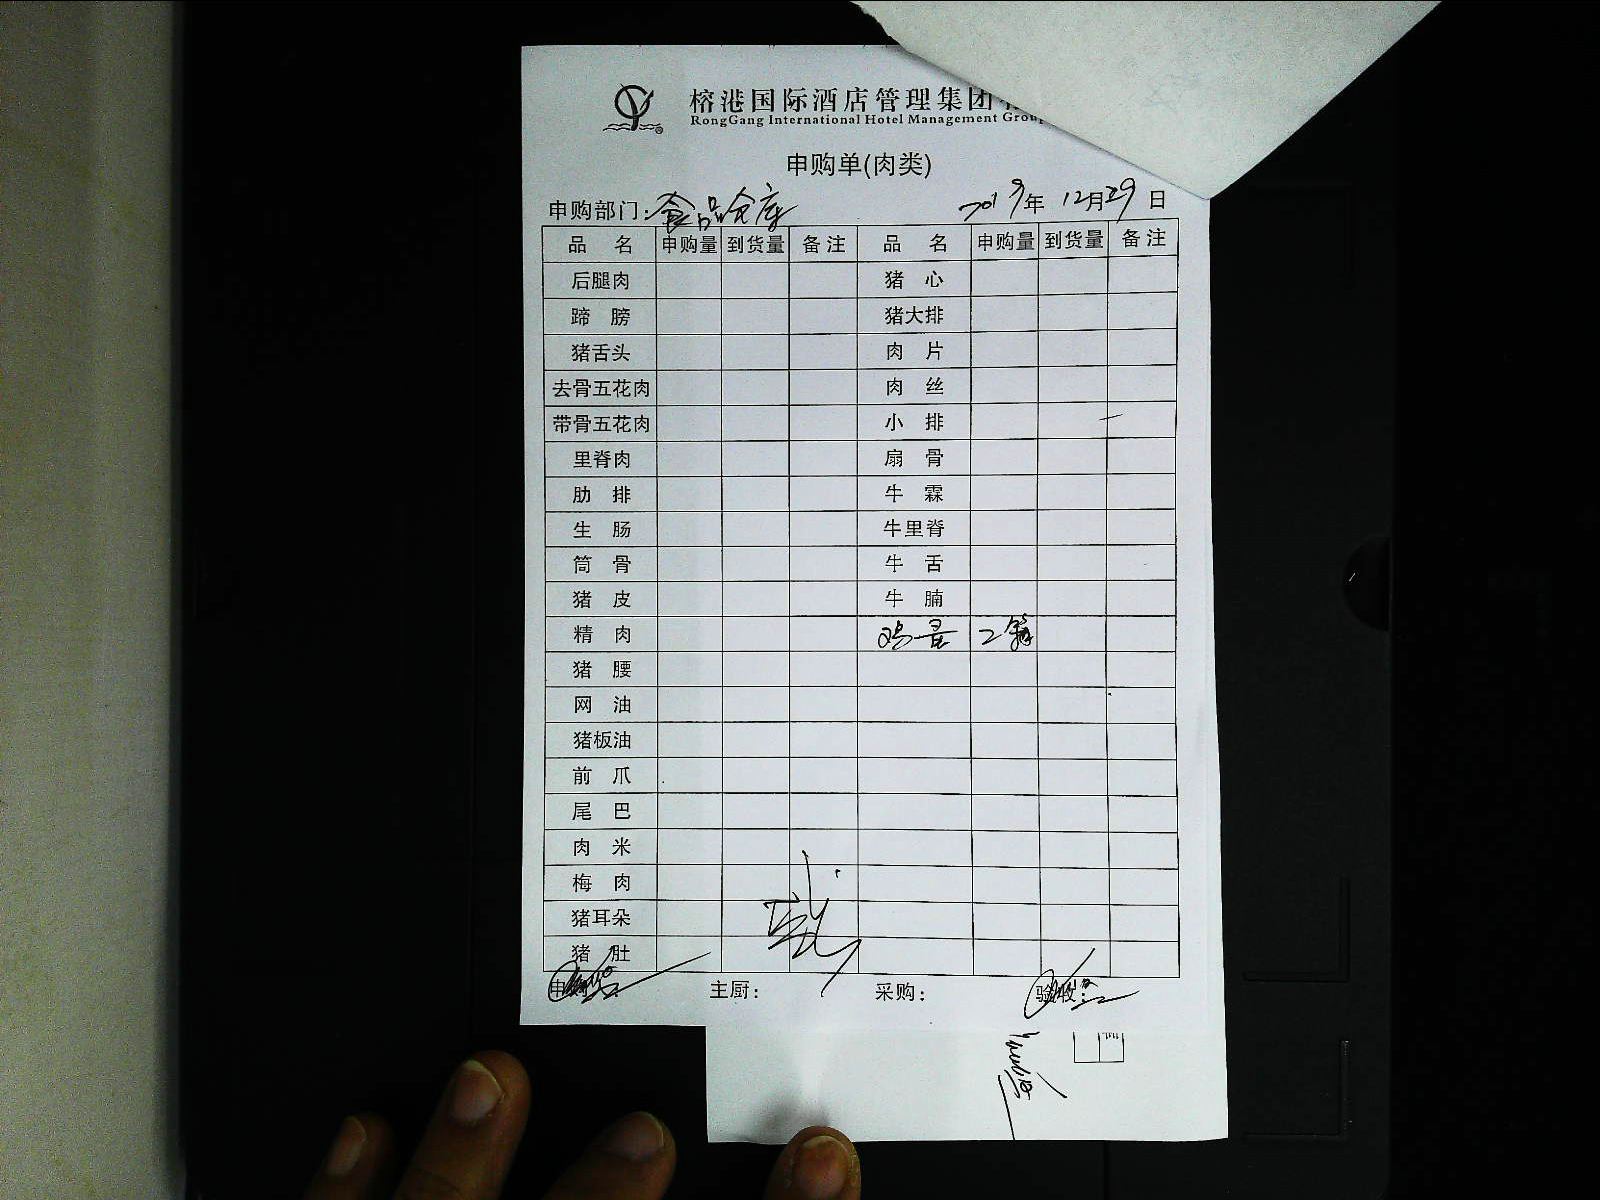 榕港国际酒店管理集团
RongGang International Hotel Management Group
申购单(肉类)
申购部门：食品仓库 2019年 12月29日
品 名 申购量 到货量 备注 品 名 申购量 到货量 备注
后腿肉 猪 心
蹄 膀 猪大排
猪舌头 肉 片
去骨五花肉 肉 丝
带骨五花肉 小 排
里脊肉 扇 骨
肋 排 牛 霖
生 肠 牛里脊
筒 骨 牛 舌
猪 皮 牛 腩
精 肉 2
猪 腰
网 油
猪板油
前 爪
尾 巴
肉 米
梅 肉
猪耳朵
猪 肚
申购： 主厨： 采购： 验收：